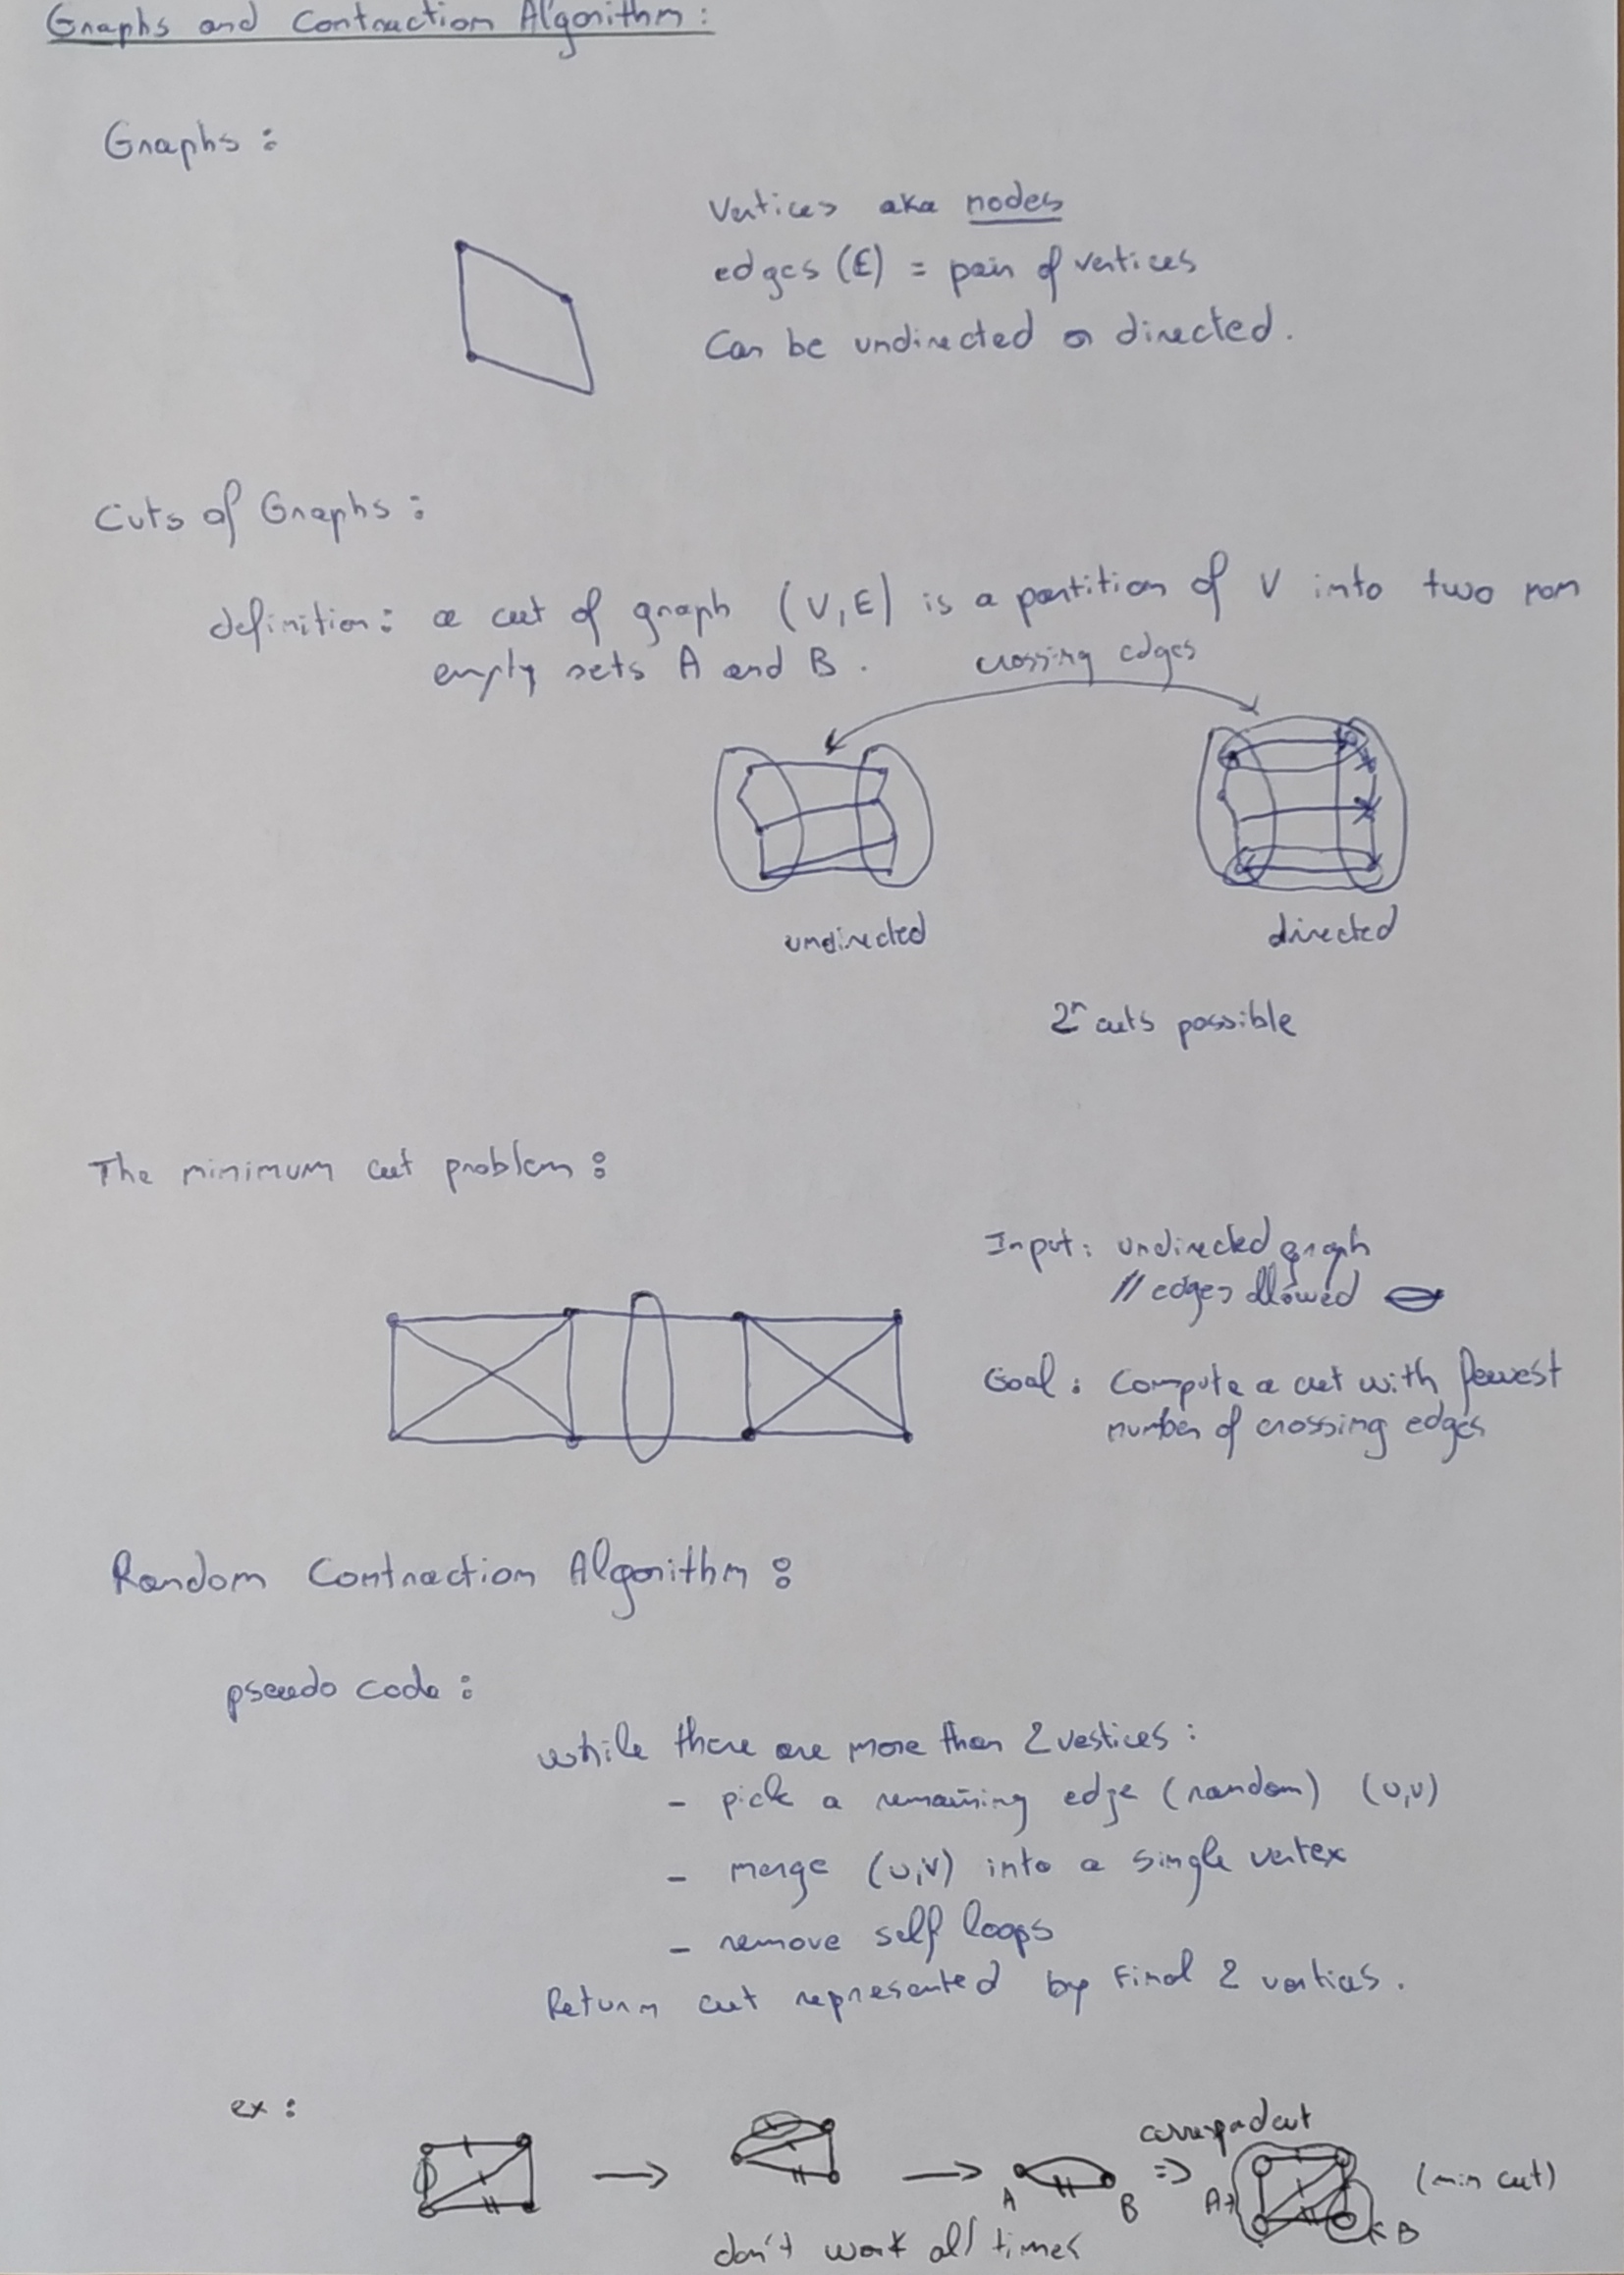 Graphs and Contraction Algorithm:
Graphs:
Vertices aka nodes
edges (E) = pair of vertices
Can be undirected or directed.
Cuts of Graphs:
definition: a cut of graph (V,E) is a partition of V into two non
empty sets A and B.
crossing edges
undirected
directed
2ⁿ cuts possible
The minimum cut problem:
Input: undirected graph
// edges allowed
Goal: Compute a cut with fewest
number of crossing edges
Random Contraction Algorithm:
pseudo code:
while there are more than 2 vestices:
- pick a remaining edge (random) (u,v)
- merge (u,v) into a single vertex
- remove self loops
Return cut represented by final 2 vertices.
ex:
correspond cut
A
B
A→
←B
(min cut)
don't work all times